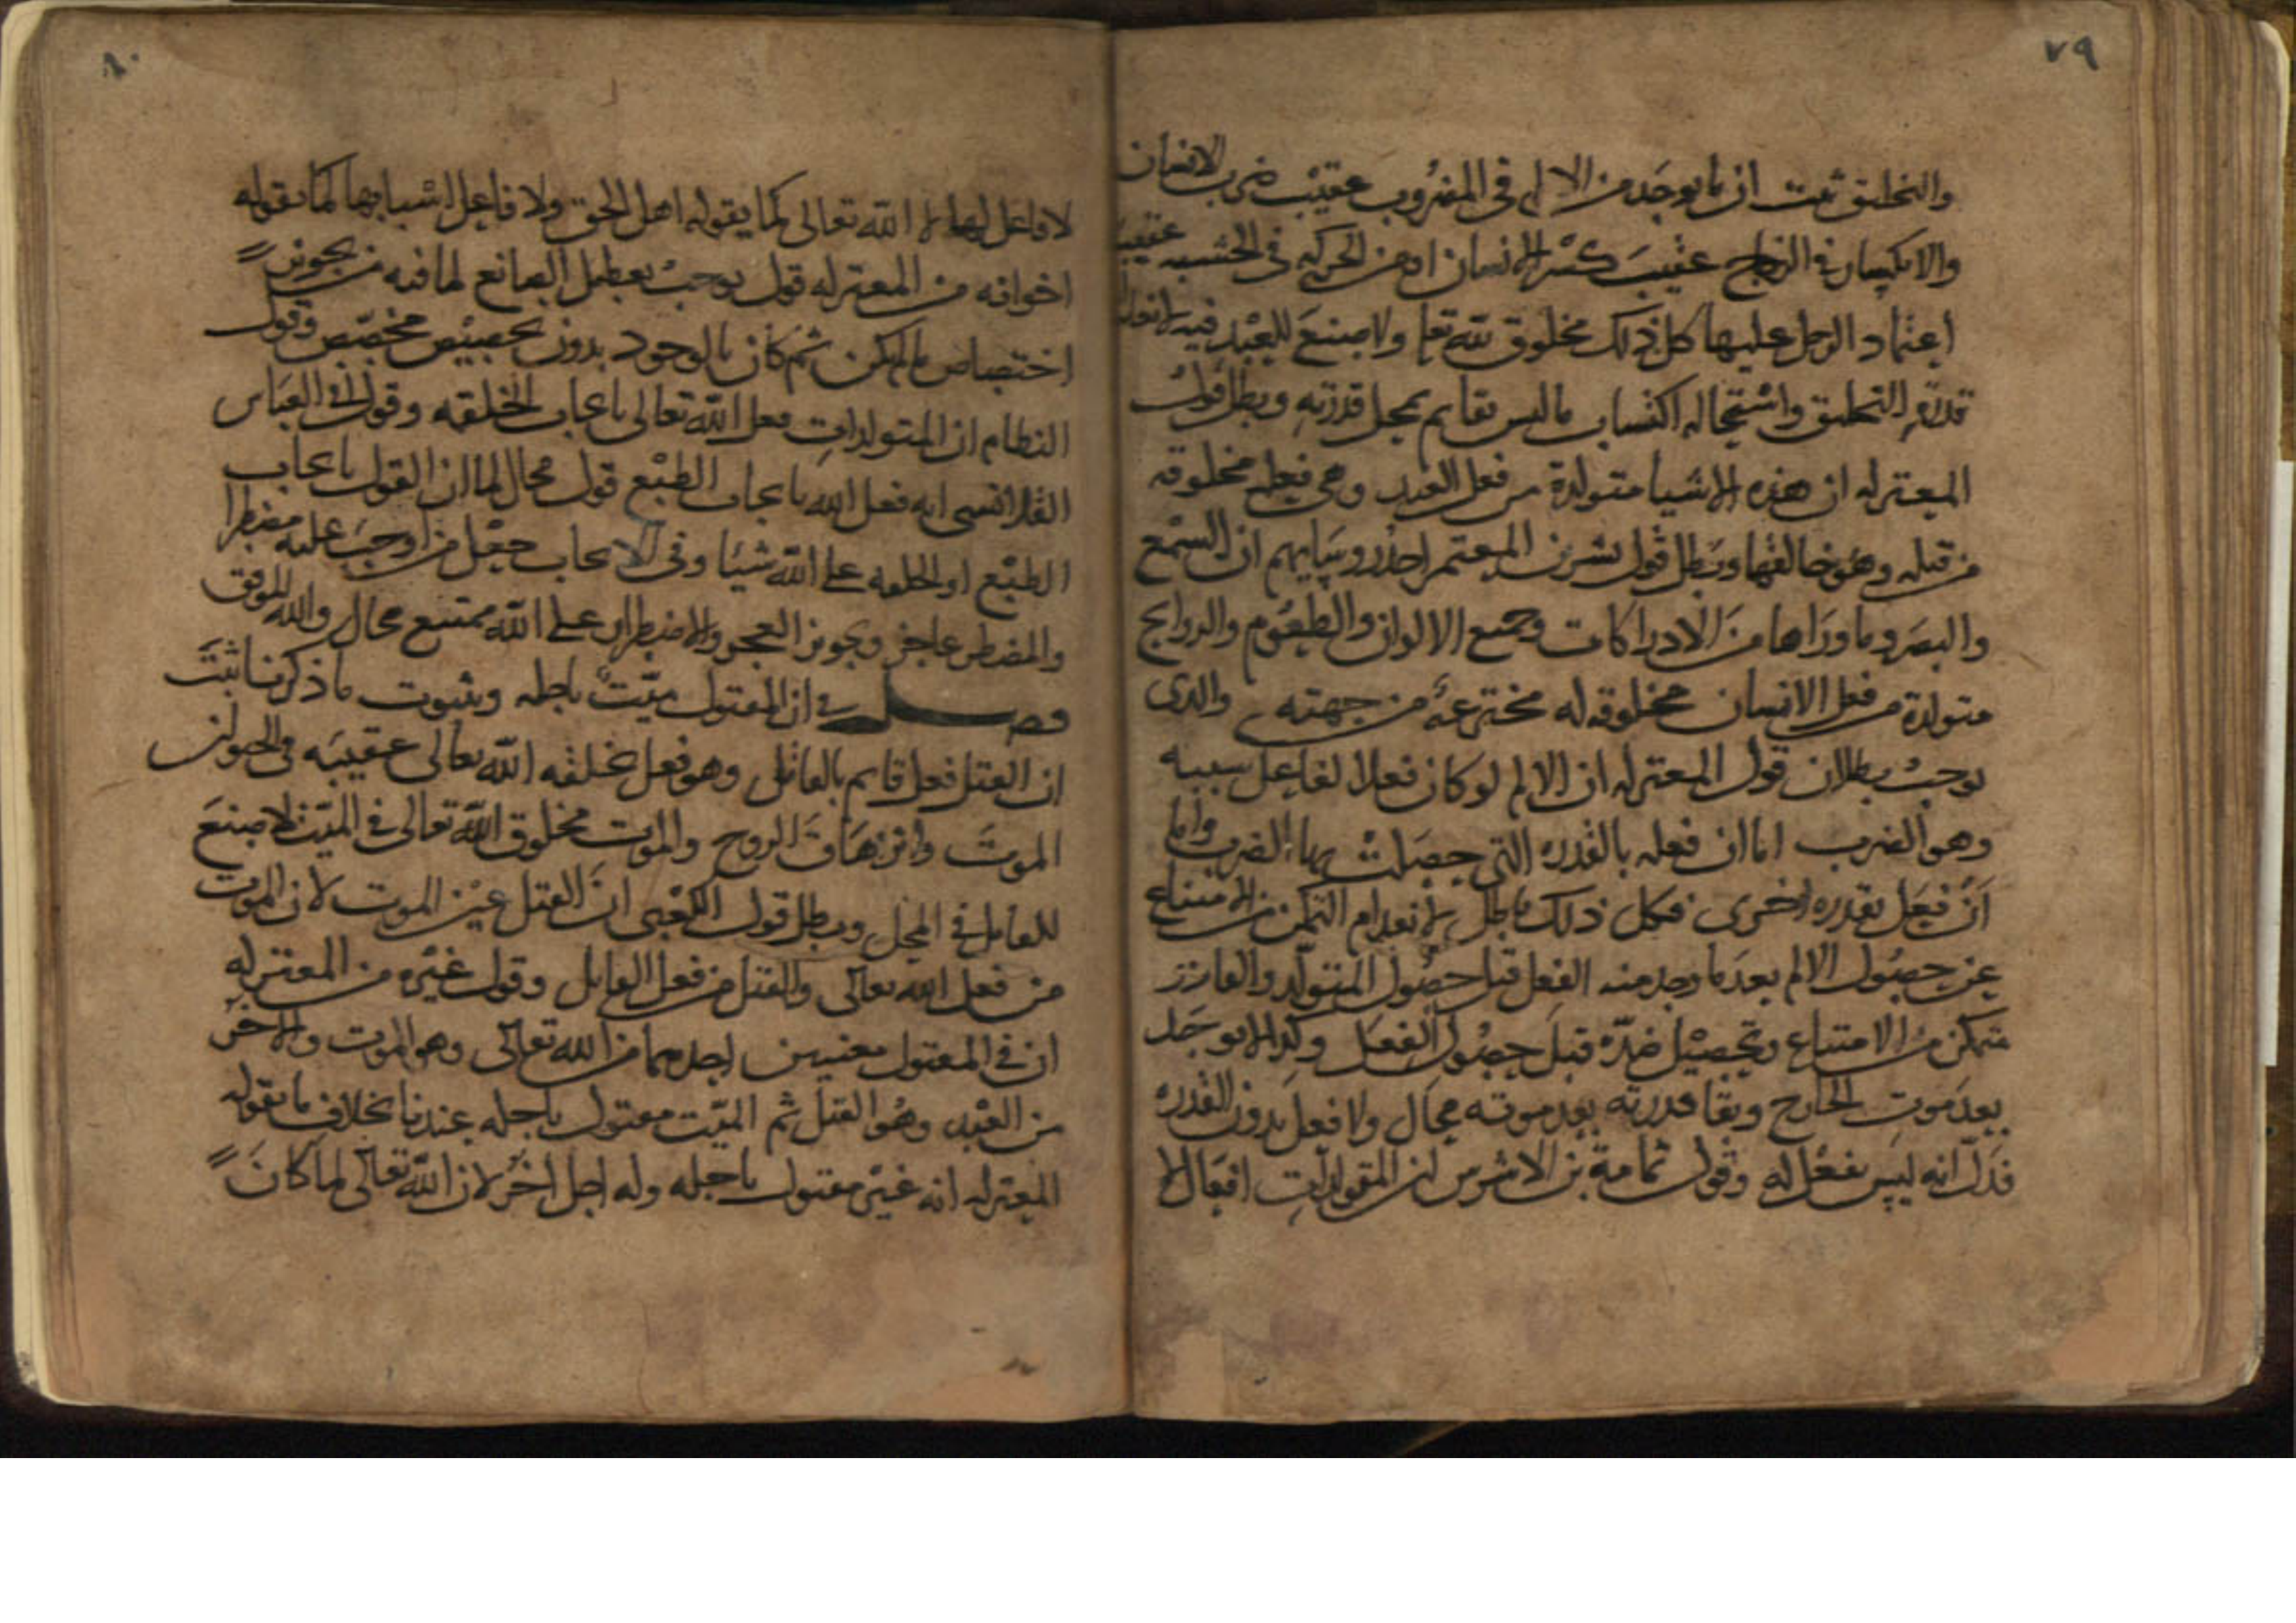 ٧٩
والتخليق ثبت ان ما يوجد من الالم في المضروب عقيب ضرب الانسان
والانكسار في الزجاج عقيب كسر الانسان او من الحركه في الخشبه عقيب
اعتماد الرجل عليها كل ذلك مخلوق لله تعا ولا صنع للعبد فيه لانعدام
قدرة التخليق واستحاله اكتساب ما ليس بقايم بمحل قدرته وبطل قول
المعتزله ان هذه الاشيا متولدة من فعل العبد وهي فعله مخلوقه
من قبله وهو خالقها وبطل قول بشر بن المعتمر احد روسايهم ان السمع
والبصر وما وراها من الادراكات وجميع الالوان والطعوم والروايح
متولدة من فعل الانسان مخلوقه له مخترعة من جهته والذى
يوجب بطلان قول المعتزله ان الالم لو كان فعلا لفاعل سببه
وهو الضرب اما ان فعله بالقدره التي حصلت بها الضرب واما
ان فعل بقدره اخرى فكل ذلك باطل لانعدام التمكن من الامتناع
عن حصول الالم بعد ما وجد منه الفعل قبل حصول المتولد والقادر
متمكن من الامتناع وتحصيل ضده قبل حصول الفعل وكذا الالم يوجد
بعد موت الجارح وبقا قدرته بعد موته محال ولا فعل بدون القدره
فدل انه ليس بفعل له وقول ثمامة بن الاشرس ان المتولدات افعال لا
٨٠
لا فاعل لها لا الله تعالى كما يقوله اهل الحق ولا فاعل اسبابها كما يقوله
اخوانه من المعتزله قول يوجب تعطيل الصانع لما فيه من تجويز
اختصاص ما لم يكن ثم كان بالوجود بدون تخصيص مخصص وقول
النظام ان المتولدات فعل الله تعالى بايجاب الخلقه وقول ابي العباس
القلانسي انه فعل الله بايجاب الطبع قول محال لما ان القول بايجاب
الطبع او الخلقه على الله شيئا وفي الايجاب جعل من اوجب عليه مضطرا
والمضطر عاجز وتجويز العجز والاضطرار على الله ممتنع محال والله الموفق
فصل في ان المقتول ميت باجله وبثبوت ما ذكرنا ثبت
ان القتل فعل قايم بالقاتل وهو فعل يخلق الله تعالى عقيبه في الحيوان
الموت وانزهاق الروح والموت مخلوق الله تعالى في الميت لا صنع
للقاتل في المحل وبطل قول الكعبى ان القتل عين الموت لان الموت
من فعل الله تعالى والقتل من فعل القاتل وقول غيره من المعتزله
ان في المقتول معنيين احدهما من الله تعالى وهو الموت والاخر
من العبد وهو القتل ثم الميت مقتول باجله عندنا بخلاف ما يقوله
المعتزله انه غير مقتول باجله وله اجل اخر لان الله تعالى لما كان